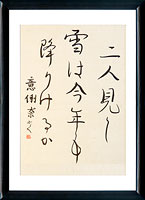 二人見し
雪は今年も
降りけるか